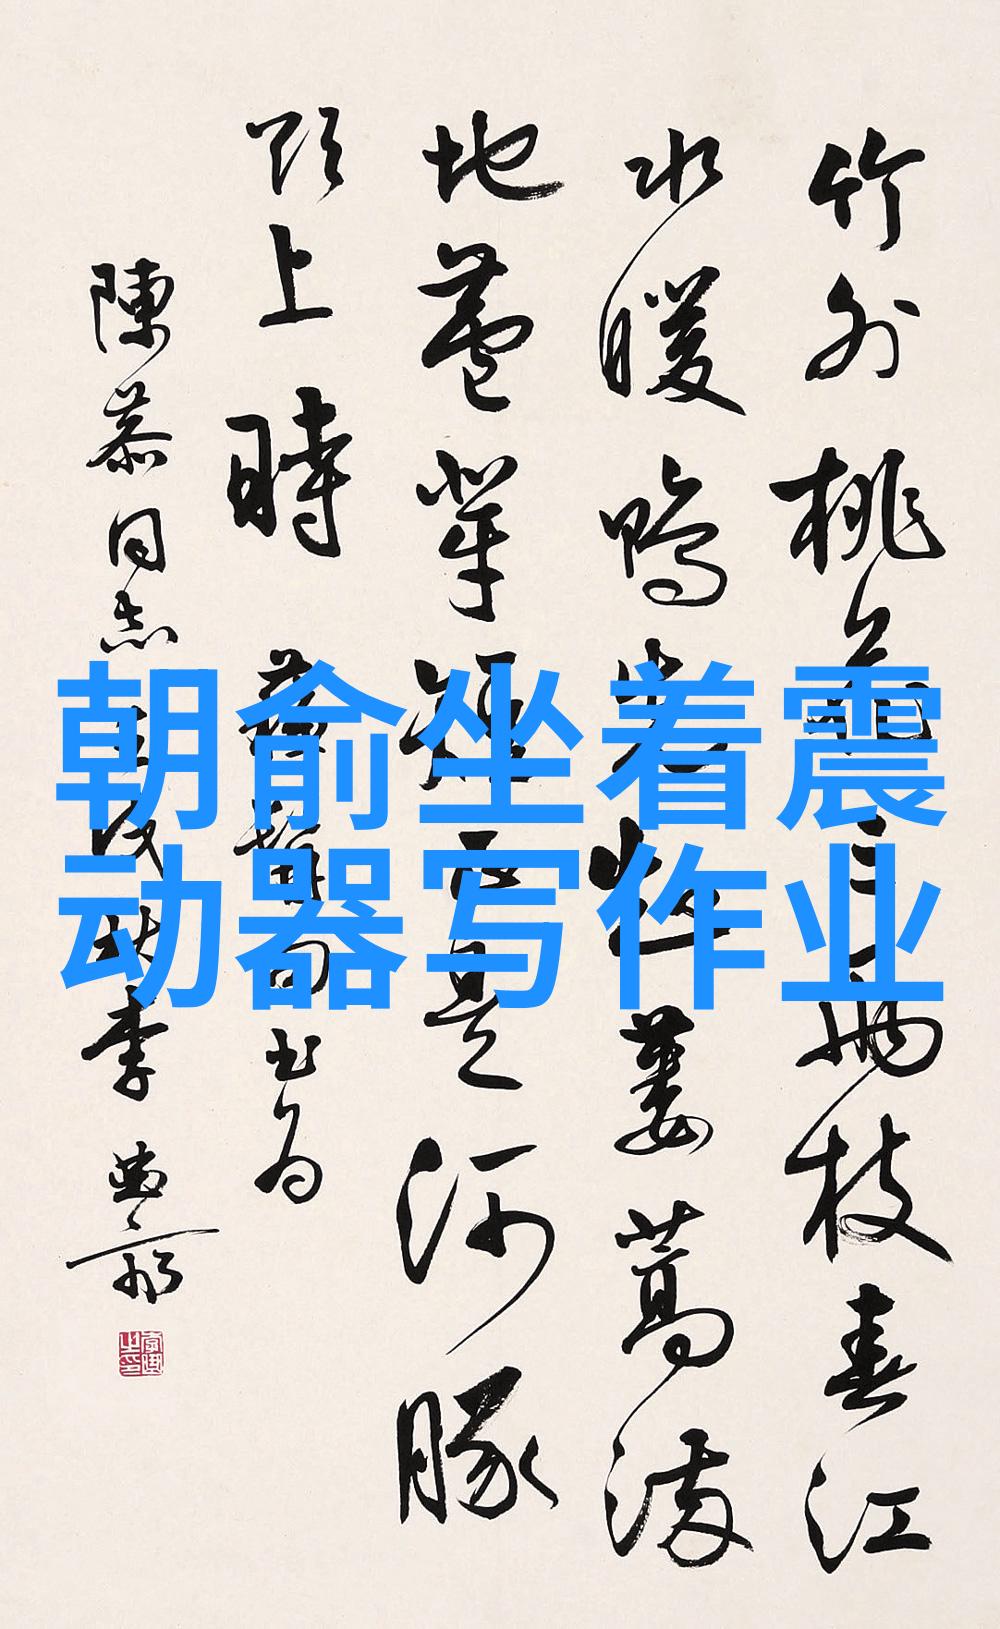 竹外桃花三兩枝春江
水暖鴨先知蔞蒿滿
地蘆芽短正是河豚
欲上時
陳 同志 李
朝俞坐着震
动器写作业